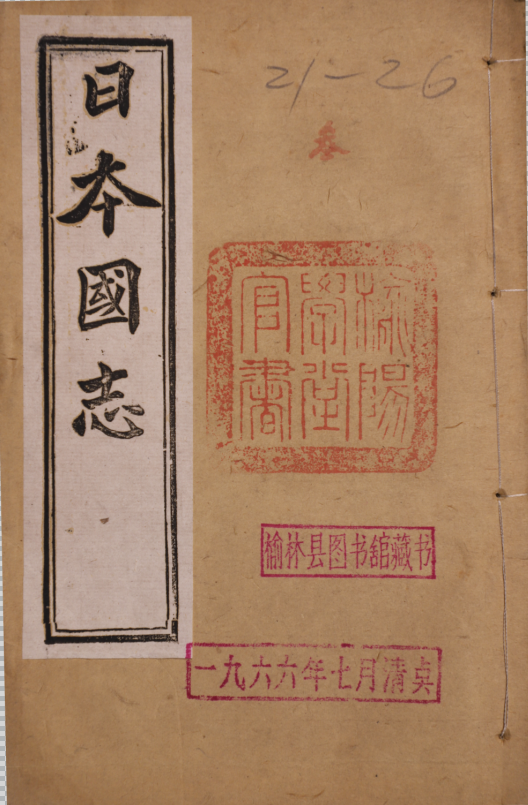 日本國志
21-26
叁
榆陽
學堂
官書
榆林县图书舘藏书
一九六六年七月清点